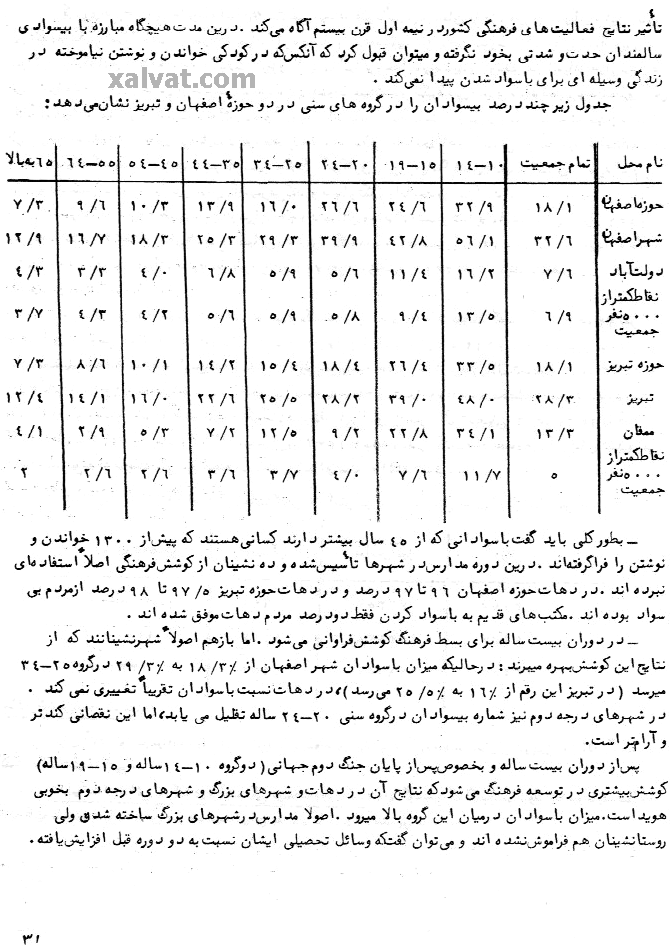 تأثیر نتایج فعالیت‌های فرهنگی کشور در نیمه اول قرن بیستم آگاه می‌کند . درین مدت هیچگاه مبارزه با بیسوادی
سالمندان حدت و شدتی بخود نگرفته و میتوان قبول کرد که آنکس‌که در کودکی خواندن و نوشتن نیاموخته در
زندگی وسیله ای برای باسواد شدن پیدا نمی‌کند .
xalvat.com
جدول زیر چند درصد بیسوادان را در گروه های سنی در دو حوزهٔ اصفهان و تبریز نشان‌می‌دهد :
نام محل تمام جمعیت ١٠–١٤ ١٥–١٩ ٢٠–٢٤ ٢٥–٣٤ ٣٥–٤٤ ٤٥–٥٤ ٥٥–٦٤ ٦٥ به بالا
حوزه اصفهان ١٨/١ ٣٢/٩ ٢٤/٦ ٢٦/٦ ١٦/٠ ١٣/٩ ١٠/٣ ٩/٦ ٧/٣
شهر اصفهان ٣٢/٦ ٥٦/١ ٤٢/٨ ٣٩/٩ ٢٩/٣ ٢٥/٣ ١٨/٣ ١٦/٧ ١٢/٩
دولت‌آباد ٧/٦ ١٦/٢ ١١/٤ ٥/٦ ٥/٩ ٦/٨ ٤/٠ ٣/٣ ٤/٣
نقاط کمتر از
٥٠٠٠ نفر ٦/٩ ١٣/٥ ٩/٤ ٥/٨ ٥/٩ ٥/٦ ٤/٢ ٤/٣ ٣/٧
جمعیت
حوزه تبریز ١٨/١ ٣٣/٥ ٢٦/٤ ١٨/٤ ١٥/٤ ١٤/٢ ١٠/١ ٨/٦ ٧/٣
تبریز ٢٨/٣ ٤٨/٠ ٣٩/٠ ٢٨/٢ ٢٥/٥ ٢٢/٦ ١٦/٠ ١٤/١ ١٢/٤
ممقان ١٣/٣ ٣٤/١ ٢٢/٨ ٩/٢ ١٢/٥ ٧/٢ ٥/٣ ٢/٩ ٤/١
نقاط کمتر از
٥٠٠٠ نفر ٥ ١١/٧ ٧/٦ ٤/٠ ٣/٧ ٣/٦ ٢/٦ ٢/٦ ٢
جمعیت
– بطور کلی باید گفت باسوادانی که از ٤٥ سال بیشتر دارند کسانی هستند که پیش‌از ١٣٠٠ خواندن و
نوشتن را فراگرفته‌اند . درین دوره مدارس در شهرها تأسیس‌شده و ده نشینان از کوشش‌فرهنگی اصلاً استفاده‌ای
نبرده اند . در دهات حوزه اصفهان ٩٦ تا ٩٧ درصد و در دهات‌حوزه تبریز ٩٧/٥ تا ٩٨ درصد از مردم بی
سواد بوده اند . مکتب‌های قدیم به باسواد کردن فقط دو درصد مردم دهات موفق شده اند .
– در دوران بیست ساله برای بسط فرهنگ کوشش‌فراوانی می‌شود . اما بازهم اصولاً شهرنشینانند که از
نتایج این کوشش بهره میبرند : در حالیکه میزان باسوادان شهر اصفهان از ٪١٨/٣ به ٪٢٩/٣ در گروه ٢٥–٣٤
میرسد ( در تبریز این رقم از ٪١٦ به ٪٢٥/٥ می رسد )، در دهات نسبت باسوادان تقریباً تغییری نمی کند .
در شهرهای درجه دوم نیز شماره بیسوادان در گروه سنی ٢٠–٢٤ ساله تقلیل می یابد، اما این نقصانی کندتر
و آرامتر است .
پس‌از دوران بیست ساله و بخصوص پس‌از پایان جنگ دوم جهانی ( دو گروه ١٠–١٤ ساله و ١٥–١٩ ساله )
کوشش‌بیشتری در توسعه فرهنگ می شود که نتایج آن در دهات و شهرهای بزرگ و شهرهای درجه دوم بخوبی
هویداست . میزان باسوادان در میان این گروه بالا میرود . اصولا مدارس در شهرهای بزرگ ساخته شده ولی
روستانشینان هم فراموش نشده اند و می‌توان گفت‌که وسائل تحصیلی ایشان نسبت به دو دوره قبل افزایش‌یافته .
٣١